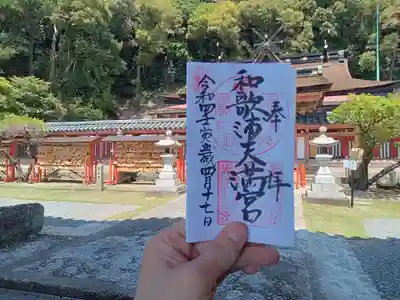 奉拝
和歌浦天満宮
令和四壬寅歳四月十七日